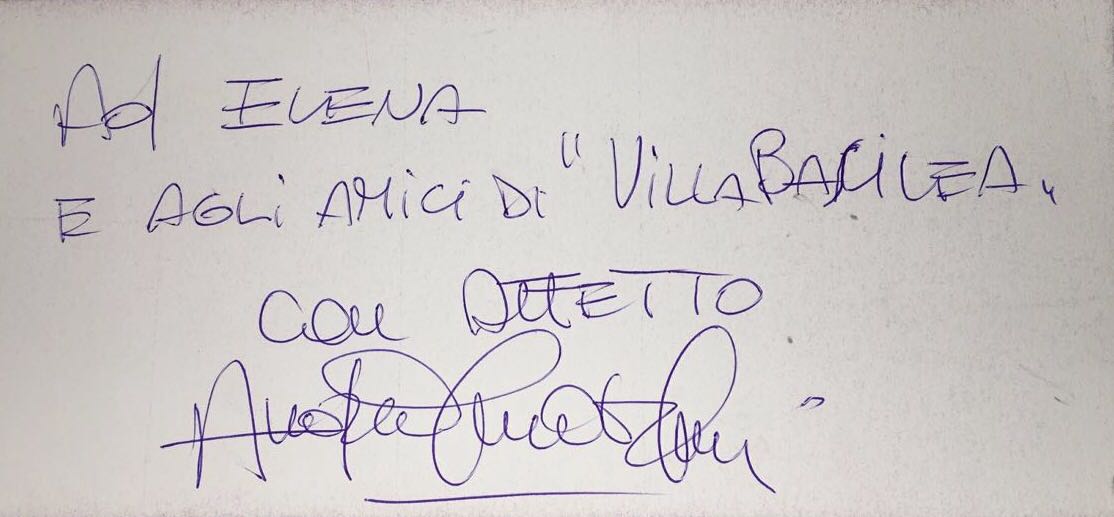 Ad ELENA
E AGLI AMICI DI "VILLA BASILEA"
con AFFETTO
Andrea